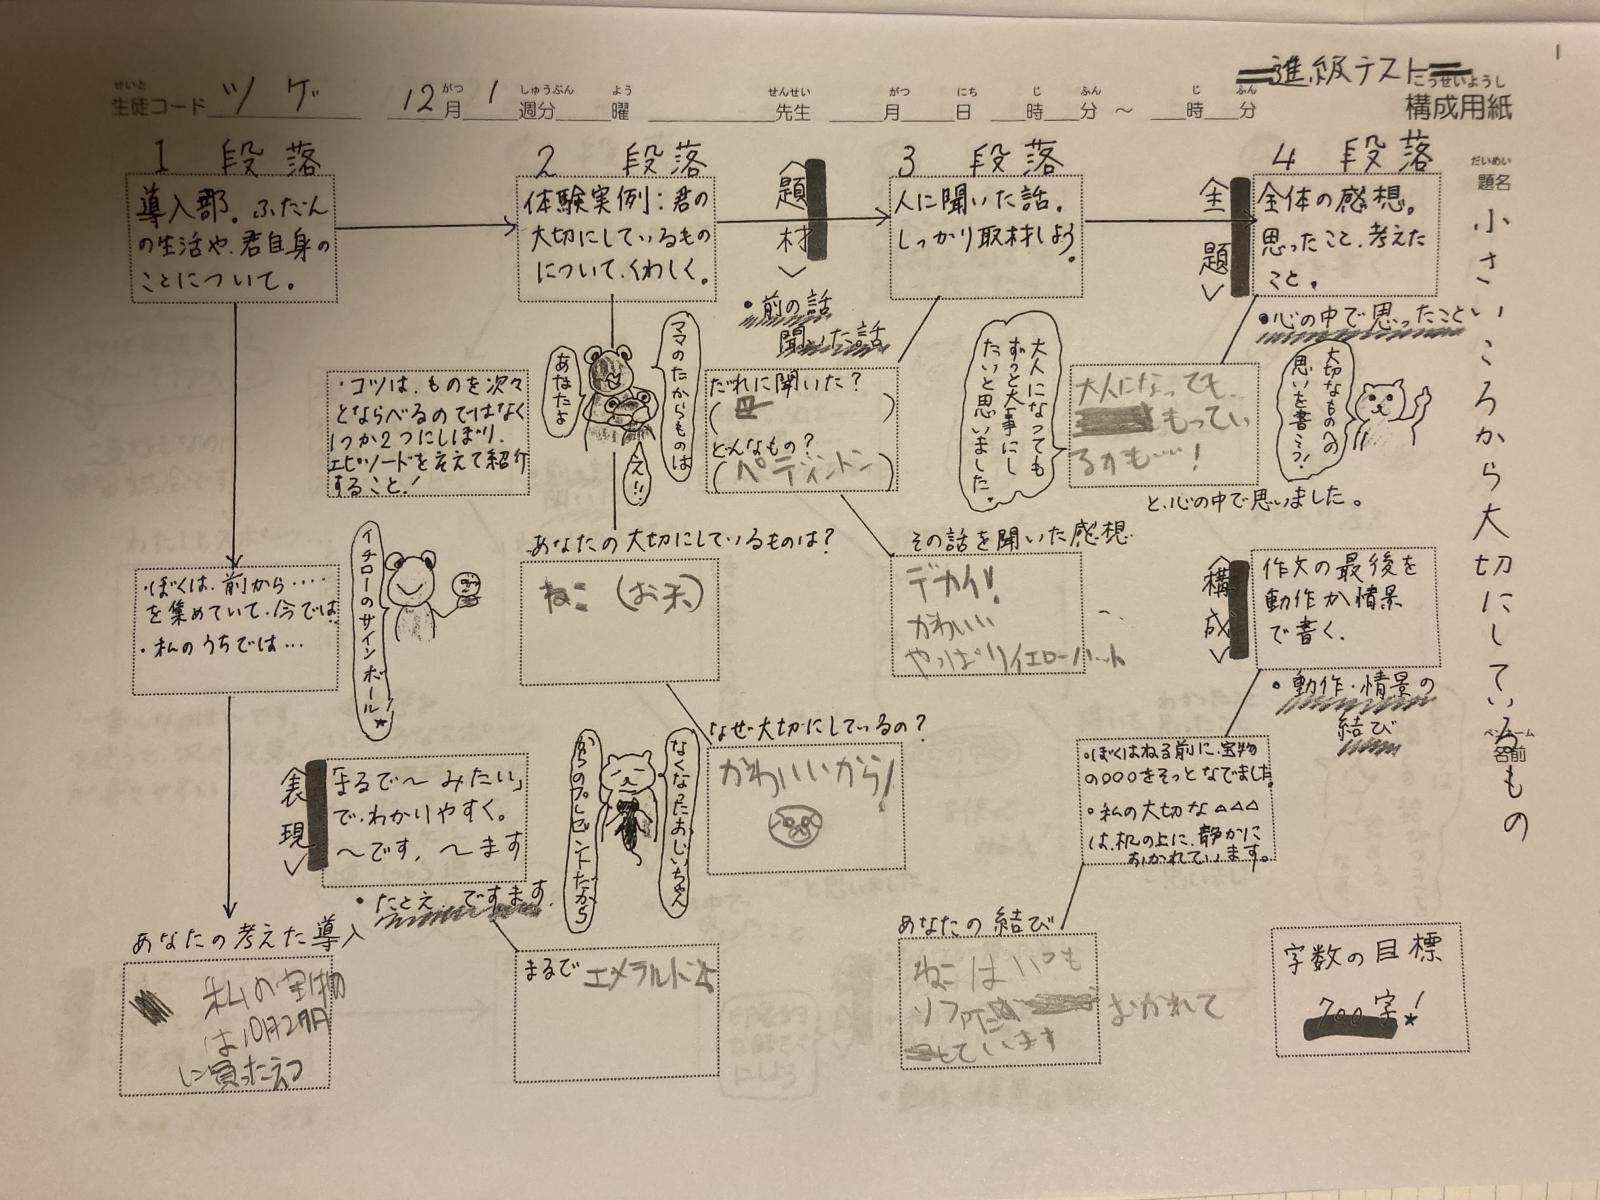 進級テスト
生徒コード ツゲ 12月1週分 曜 先生 月 日 時 分 ～ 時 分
せいと がつ しゅうぶん よう せんせい がつ にち じ ふん じ ふん
こうせいようし
構成用紙
だいめい
題名
小さいころから大切にしているもの
ペンネーム
名前
1段落
導入部。ふだん
の生活や、君自身の
ことについて。
・ぼくは、前から‥‥
を集めていて、今では
・私のうちでは…
イチローのサインボール!
〈表現〉
「まるで～みたい」
で、わかりやすく。
～です、～ます
・たとえ、ですます。
あなたの考えた導入
私の宝物
は10月27日
に買った
2段落
体験実例:君の
大切にしているもの
について、くわしく。
・コツは、ものを次々
とならべるのではなく
1つか2つにしぼり、
エピソードをそえて紹介
すること!
ママのたからものは
あなたよ
え!!
あなたの大切にしているものは?
ねこ(お天)
なぜ大切にしているの?
かわいいから!
なくなったおじいちゃん
からのプレゼントだから
まるで エメラルド
〈題材〉
・前の話
聞いた話
3段落
人に聞いた話。
しっかり取材しよう。
だれに聞いた?
(母)
どんなもの?
(ペディントン)
その話を聞いた感想
デカイ!
かわいい
やっぱりイエローハート
〈主題〉
4段落
全体の感想。
思ったこと、考えた
こと。
・心の中で思ったこと
大切なものへの
思いを書こう!
大人になっても
ずっと大事にし
たいと思いました。
大人になっても
もってい
るかも…!
と、心の中で思いました。
〈構成〉
作文の最後を
動作か情景
で書く。
・動作・情景の
結び
・ぼくはねる前に、宝物
の○○○をそっとなでました。
・私の大切な△△△
は、机の上に、静かに
おかれています。
あなたの結び
ねこはいつも
ソファに おかれて
います
字数の目標
700字!